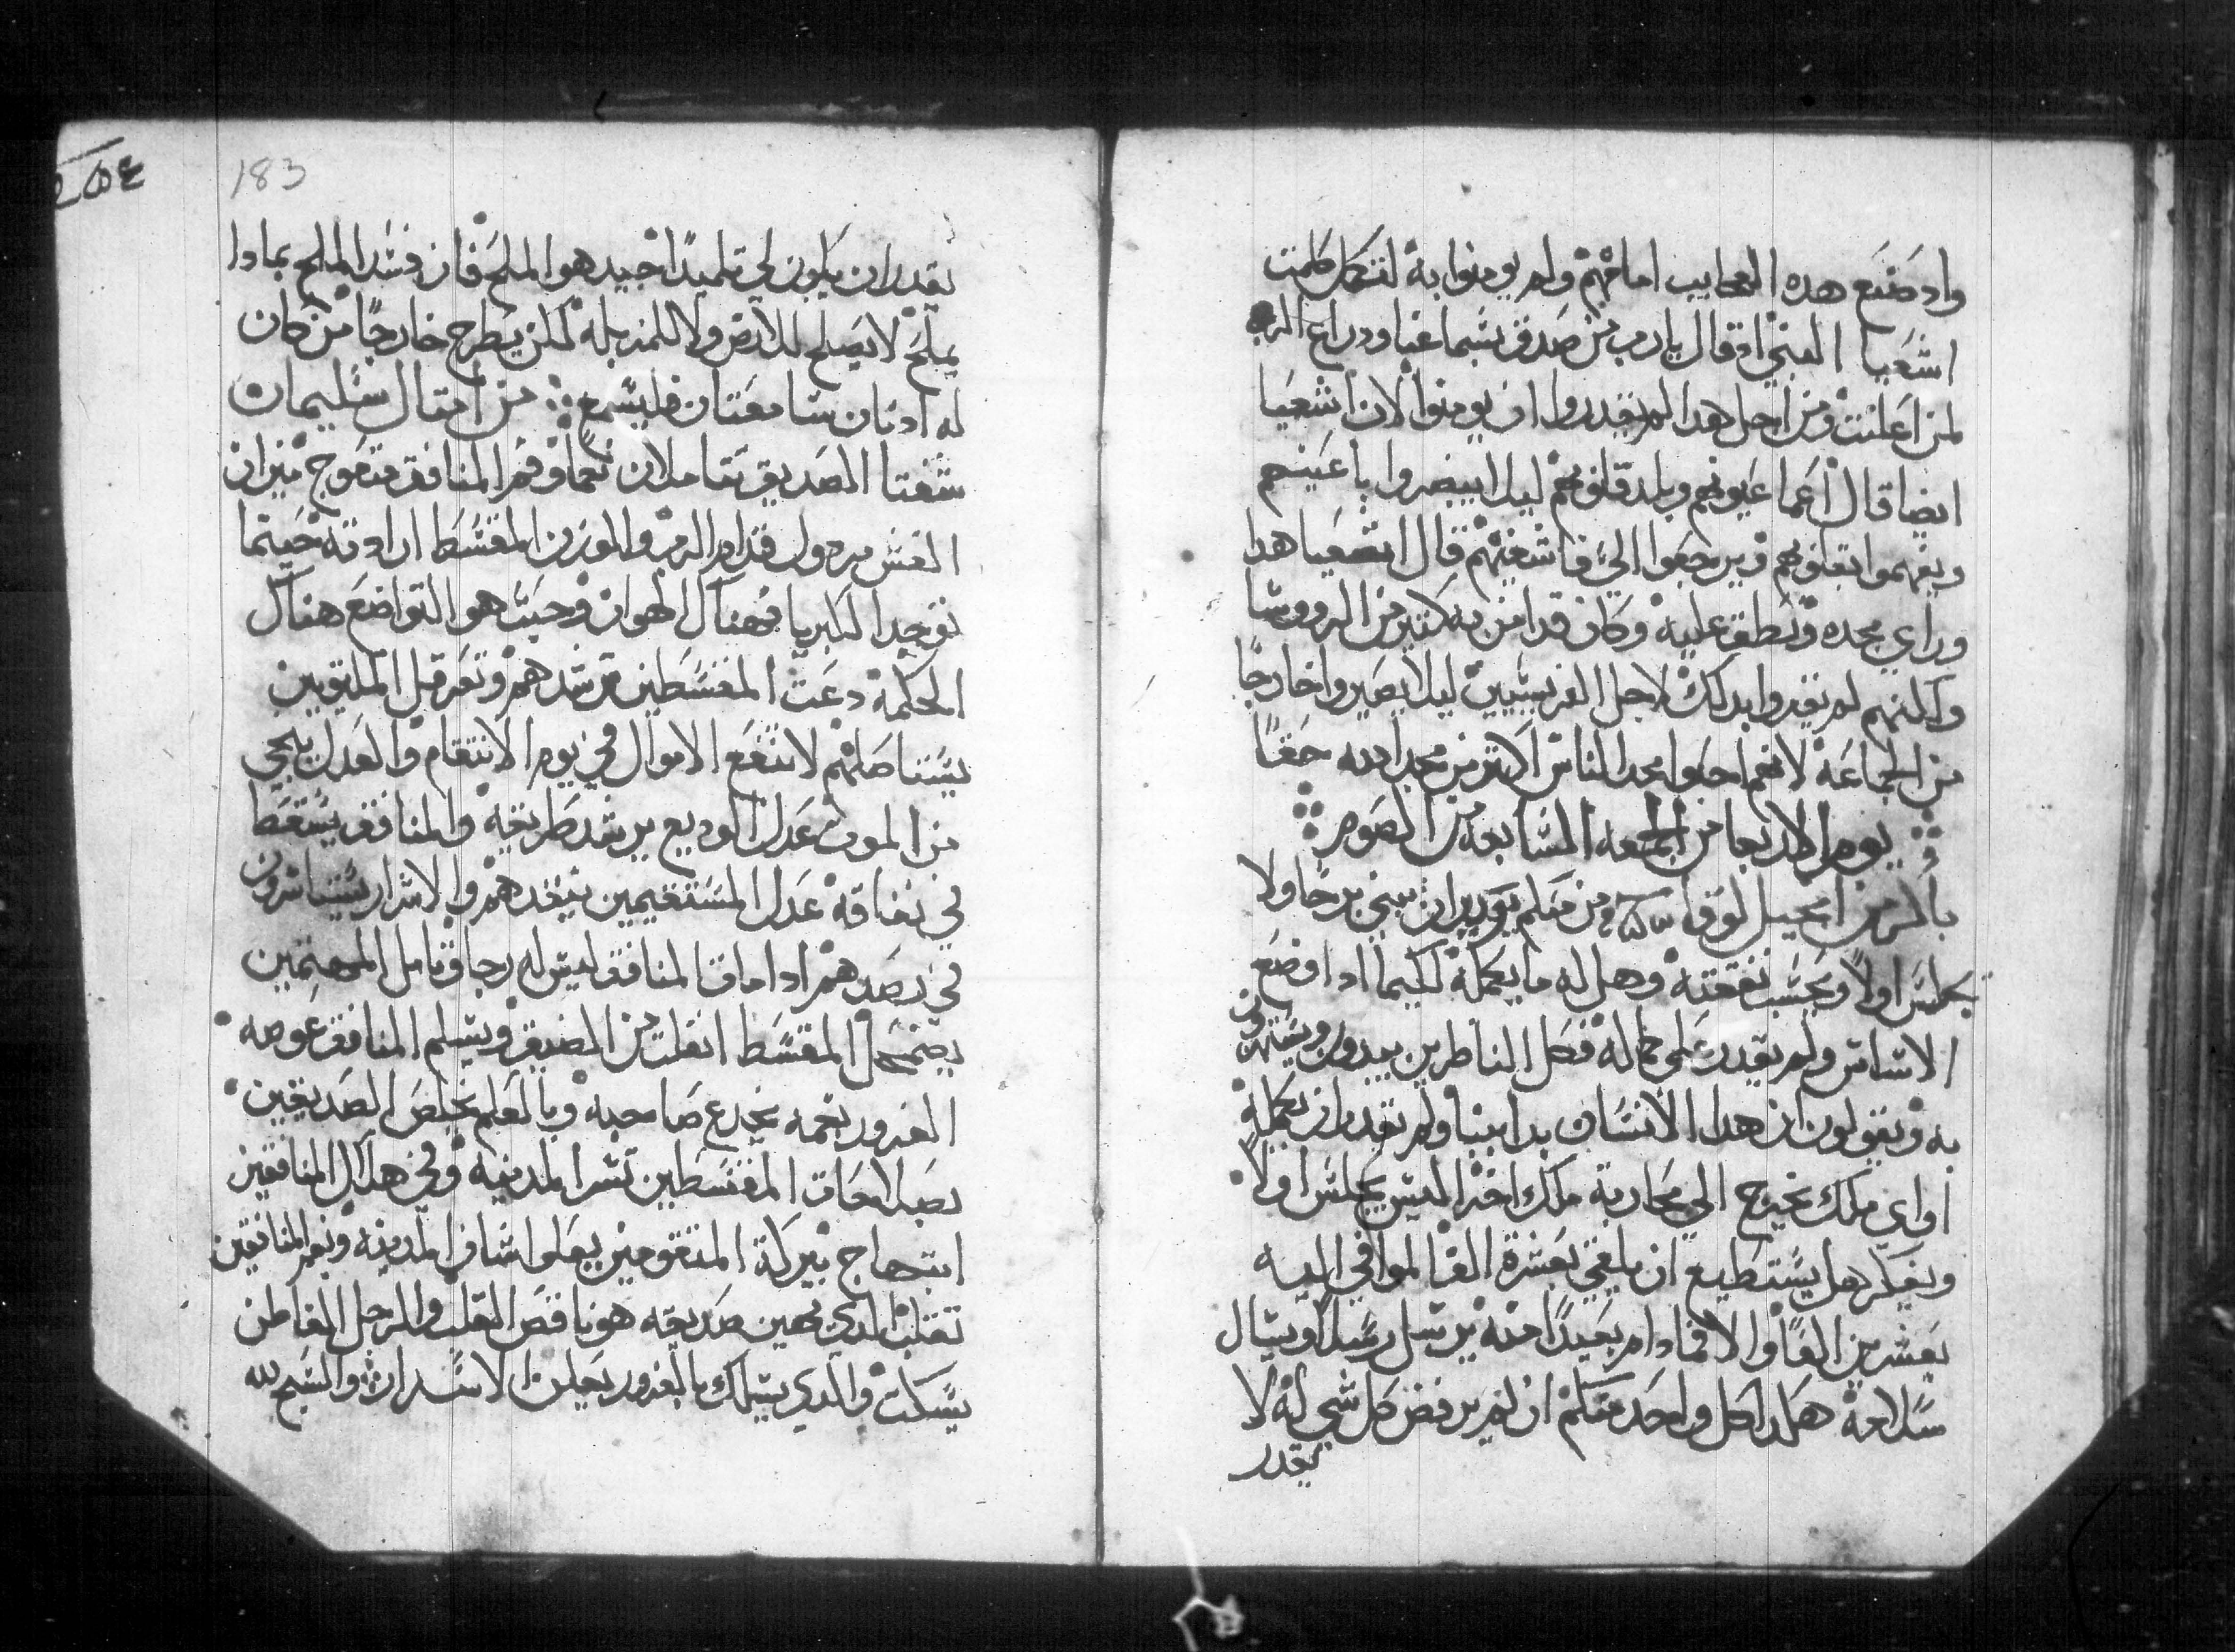 واد صنع هده العجايب امامهم ولم يومنوا بة لتكمل كلمت
اشعيا النبي اد قال يارب من صدق بسماعنا ودراع الرب
لمن اعلنت ومن اجل هدا لم يقدروا ان يومنوا لان اشعيا
ايضا قال اعما عيونهم وبلد قلوبهم ليلا يبصروا باعينهم
ويفهموا بقلوبهم ويرجعوا الي فاشفيهم قال اشعيا هدا
وراي مجده ونطق عليه وكان قد امن به كتير من الرووسا
ولكنهم لم يقروا بدلك لاجل الفريسيين ليلا يصيروا خارجا
من الجماعة لانهم احبوا مجد الناس اكتر من مجد الله حقا
يوم الاربعا من الجمعه السابعه من الصوم
باكر من انجيل لوقا ومن منكم يريد ان يبني برجا ولا
يجلس اولا ويحسب نفقته وهل له ما يكملة لكيما ادا وضع
الاساس ولم يقدر علي كماله فكل الناظرين يبدون ويستهزون
به ويقولون ان هدا الانسان بدا يبنا ولم يقدر ان يكملة
او اي ملك يخرج الي محاربة ملك اخر اليس يجلس اولا
ويفكر هل يستطيع ان يلقي بعشرة الف الموافي اليه
بعشرين الفا والا فما دام بعيدا منه يرسل رسلا ويسال
سلامة هكدا كل واحد منكم ان لم يرفض كل شي له لا
يقدر
183
يقدر ان يكون لي تلميدا جيد هو الملح فان فسد الملح بمادا
يملح لا يصلح للارض ولا للمزبلة لكن يطرح خارجا من كان
له ادنان سامعتان فليسمع من امتال سليمان
شفتا الصديق تتاملان نعما وفم المنافق متعوج ميزان
الغش مردول قدام الرب والوزن المقسط ارادته حيتما
توجد الكبريا فهناك الهوان وحيت هو التواضع هناك
الحكمة دعت المقسطين ترشدهم وتعرقل الملتويين
يستاصلهم لا تنفع الاموال في يوم الانتقام والعدل ينجي
من الموت عدل الوديع يرشد طريقه والمنافق يسقط
في نفاقه عدل المستقيمين ينقدهم والاشرار يستاسرون
في بصدهم ادا مات المنافق ليس له رجا وتامل المهتمين
يضمحل المقسط انفلت من الضيق ويسلم المنافق عوضه
الغرور بفمه يخدع صاحبه وبالعلم يخلص الصديقين
بصلاحات المقسطين تسر المدينه وفي هلاك المنافقين
ابتهاج ببركة المتقومين يعلوا شان المدينه وبفم المنافقين
تقلب الدي يهين صديقه هو ناقص القلب والرجل الفاطن
يسكت والدي يسلك بالغرور يعلن الاسرار والسبح لله